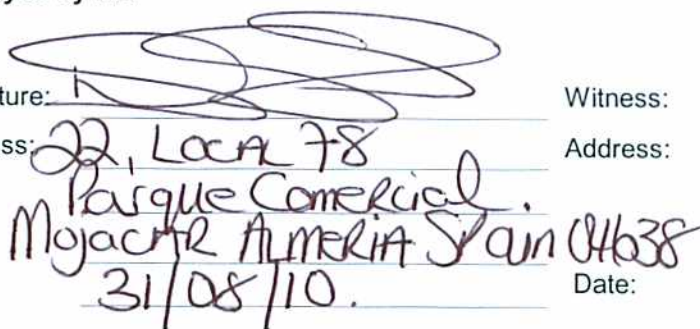 ture: Witness:
ss: 22, LOCAL 78 Address:
Parque Comercial.
Mojacar ALMERIA Spain 04638
31/08/10. Date: